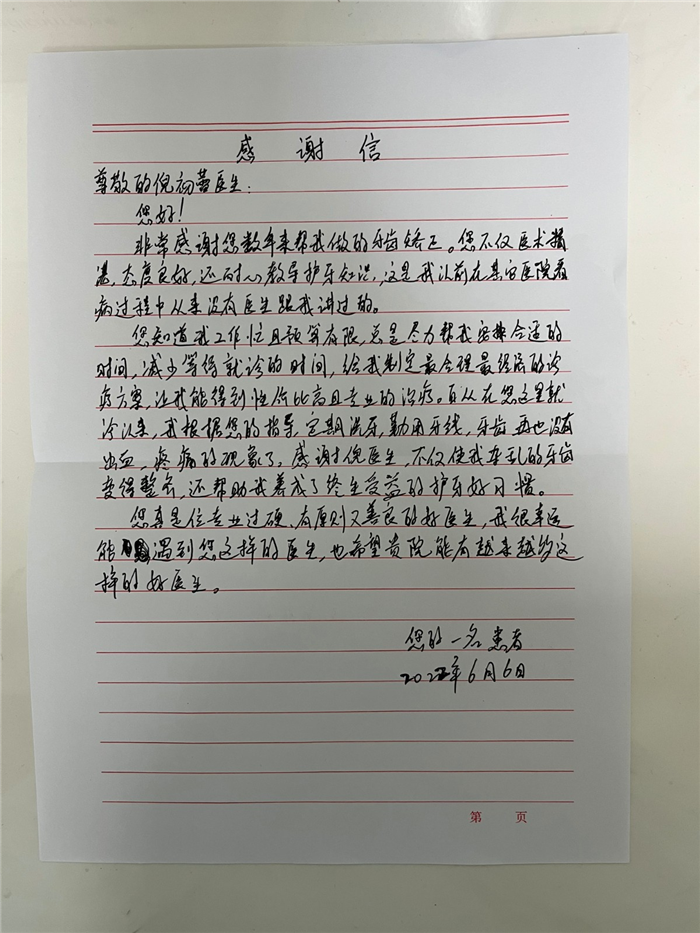 感谢信
尊敬的倪初蕾医生：
您好！
非常感谢您数年来帮我做的牙齿矫正。您不仅医术精
湛，态度良好，还耐心教导护牙知识，这是我以前在其它医院看
病过程中从来没有医生跟我讲过的。
您知道我工作忙且预算有限，总是尽力帮我安排合适的
时间，减少等待就诊的时间，给我制定最合理最经济的诊
疗方案，让我能得到性价比高且专业的治疗。自从在您这里就
诊以来，我根据您的指导，定期洗牙，勤用牙线，牙齿再也没有
出血，疼痛的现象了。感谢倪医生，不仅使我杂乱的牙齿
变得整齐，还帮助我养成了终生受益的护牙好习惯。
您真是位专业过硬、有原则又善良的好医生，我很幸运
能遇到您这样的医生，也希望贵院能有越来越多这
样的好医生。
您的一名患者
2022年6月6日
第 页